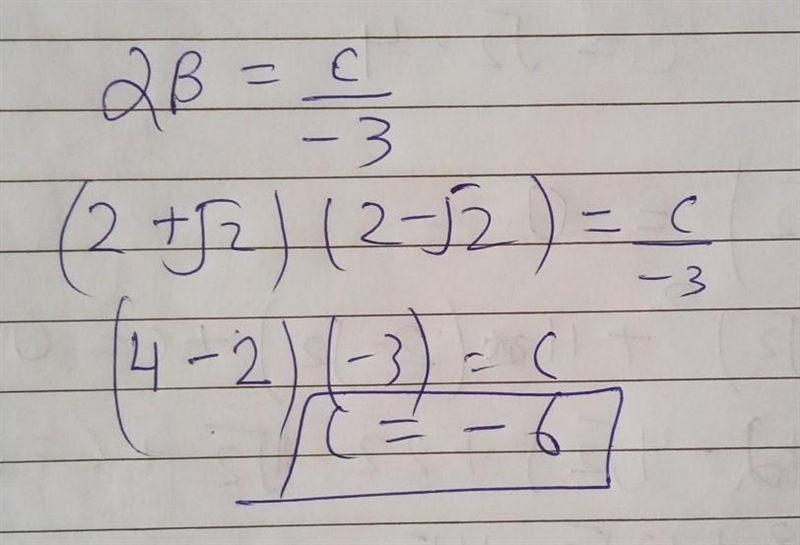 αβ = c/-3
(2 + √2) (2 - √2) = c/-3
(4 - 2) (-3) = c
c = - 6